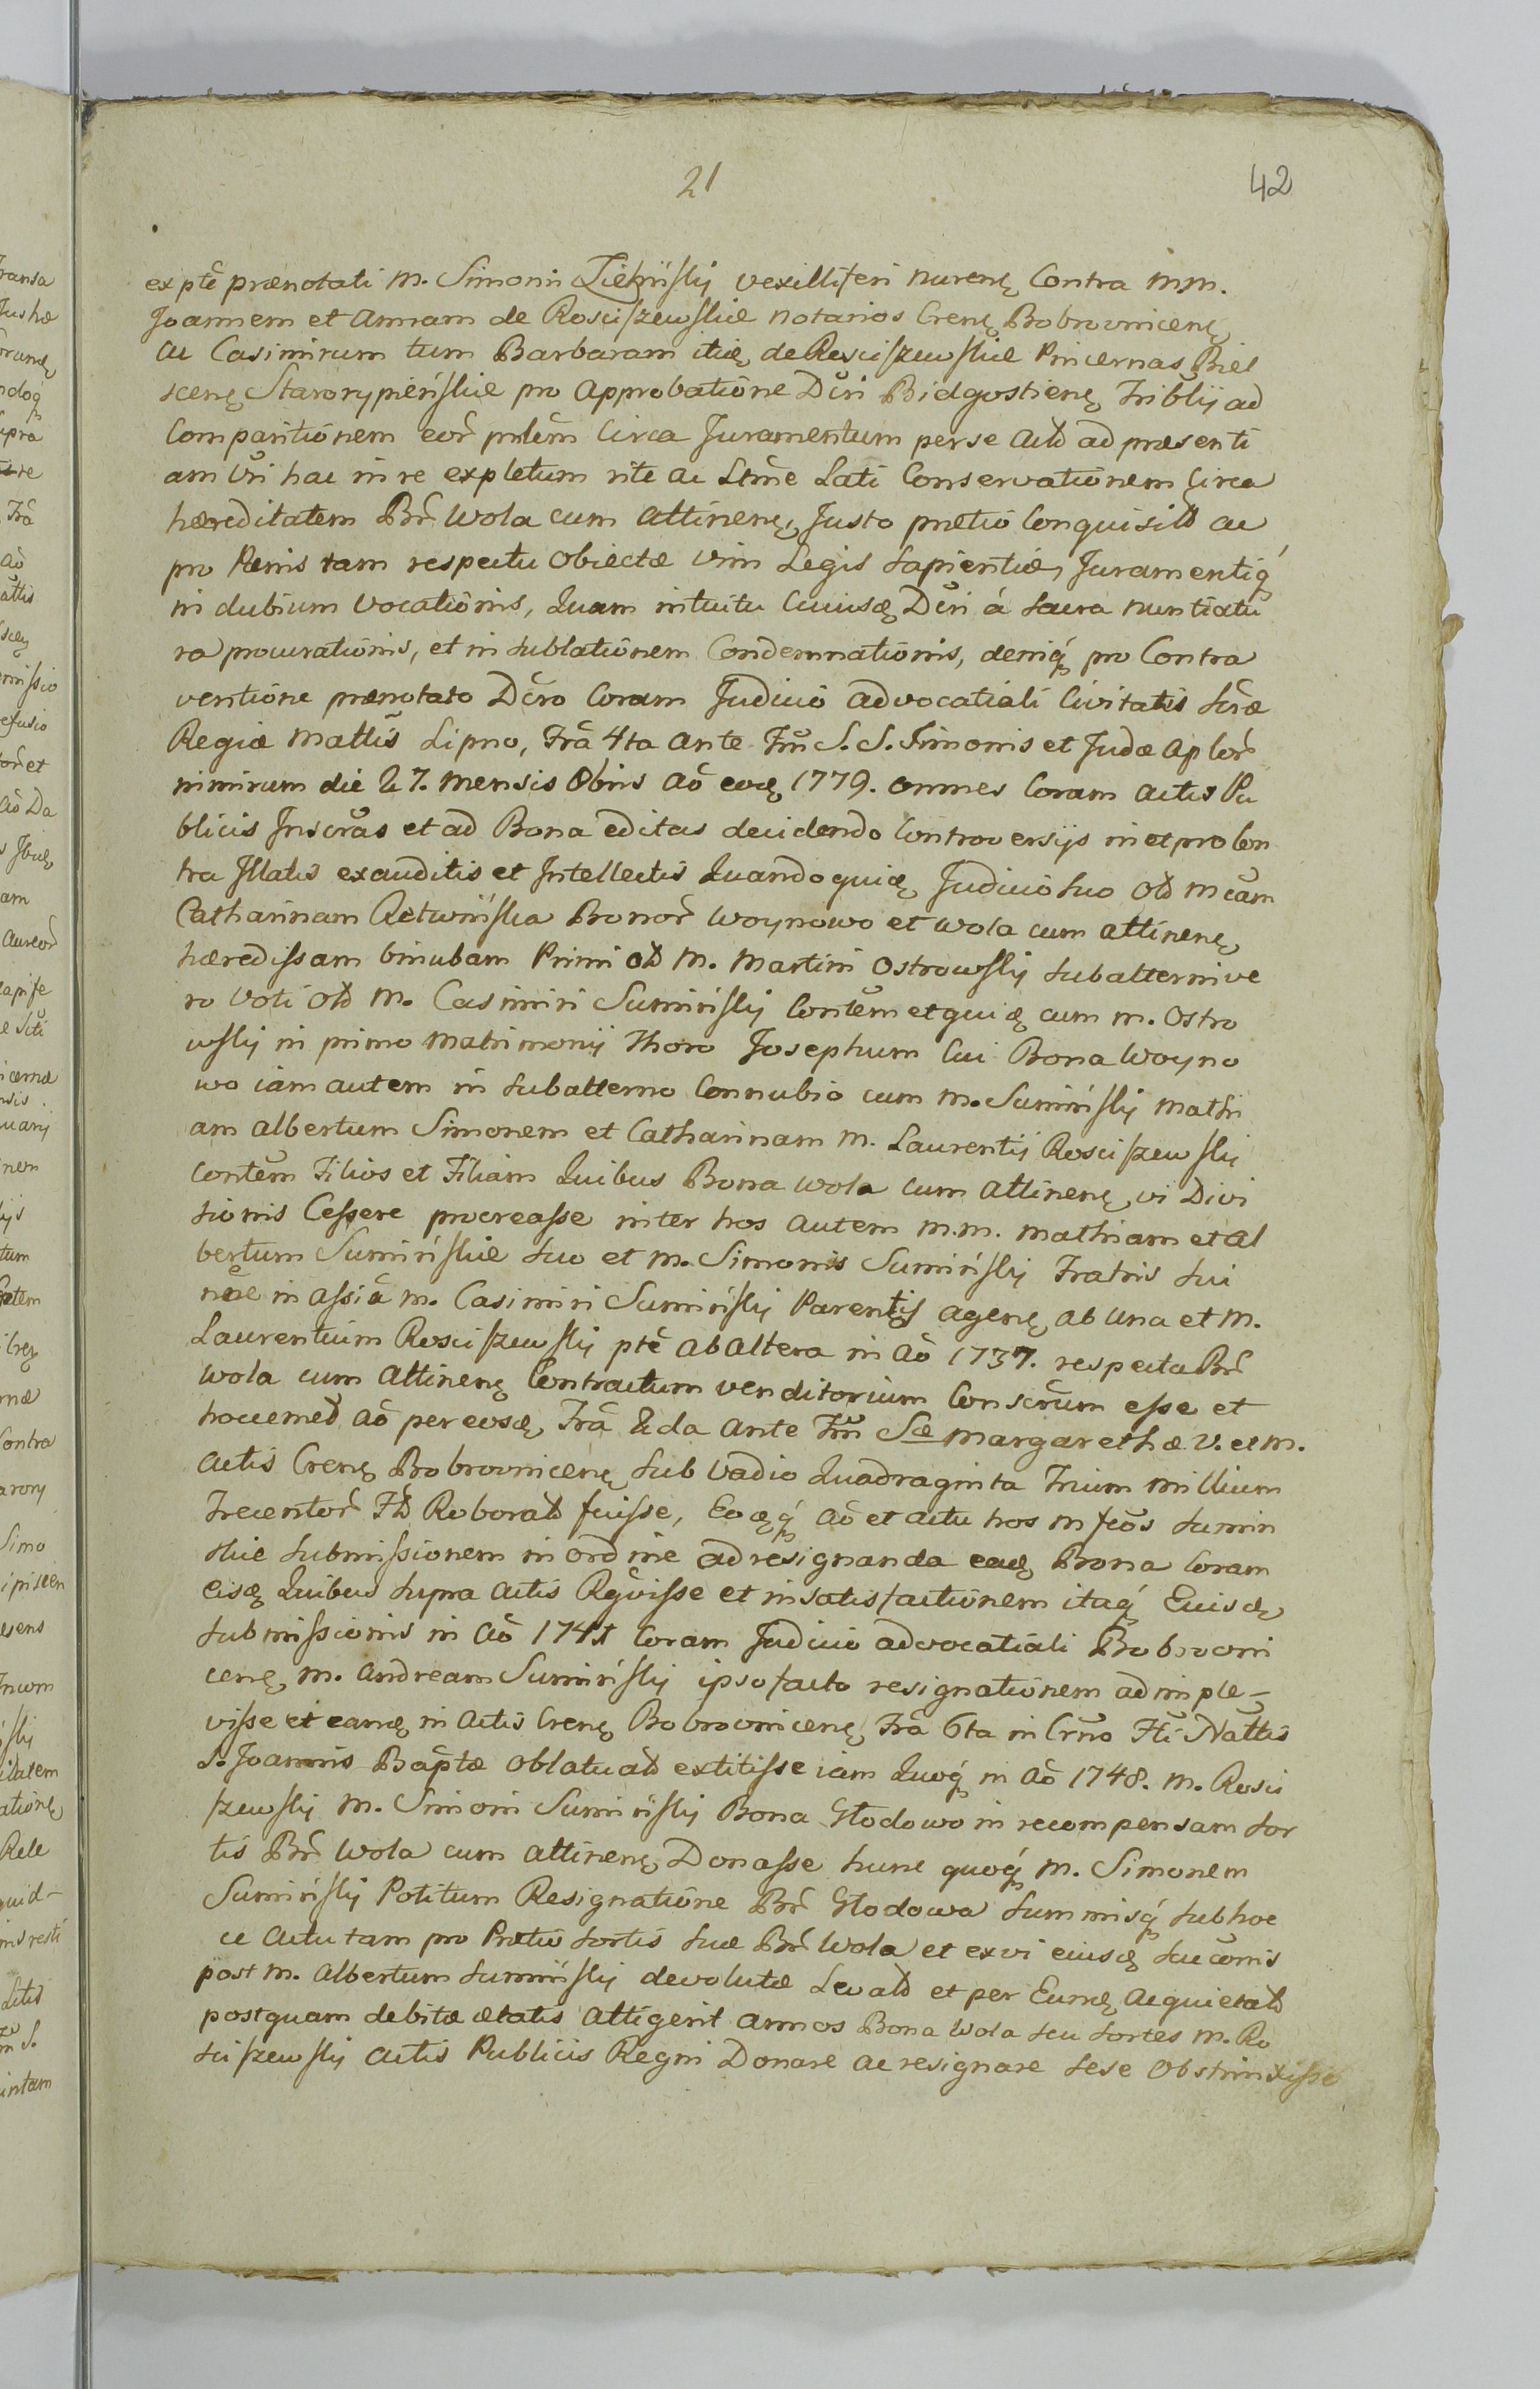 21
42
ex ptê prænotati M. Simonis Zieliński vexilliferi nurenę Contra MM.
Joannem et Annam de Rosciszewskie notarios Crenę Bobrovnicenę
ac Casimirum tum Barbaram itię de Rosciszewskie Pincernas Biel
scenę Starorypieńskie pro Approbatione Dcri Bidgostienę Triblij ad
Comparitionem eor̃ pnlem Circa Juramentum per se actõ ad præsenti
am Vri hac in re expletum rite ac Ltme Lati Conservationem Circa
hæreditatem Br̃ Wola cum attinenę, Justo pretio Conquisitõ ac
pro Pænis tam respectu obiectæ vim Legis sapientiæ, Juramentiq́
in dubium vocationis, Quam intuitu Cuiusdę Dcri á sacra nuntiatu
ra procurationis, et in sublationem Condemnationis, deniq́ pro Contra
ventione prænotato Dcro Coram Judicio advocatiali Civitatis Sræ
Regiæ Mattis Lipno, Frâ 4ta ante Fm̃ S. S. Simonis et Judæ Aplor̃
nimirum die 27. Mensis 8bris Aõ eodę 1779. omnes Coram actis Pu
blicis Inscrãs et ad Bona editas decidendo Controversijs in et pro Con
tra Illatis exauditis et Intellectis Quandoquidę Judicio suo Olõ Mcam
Catharinam Retwińska Bonor̃ Woynowo et Wola cum attinenę
hæredissam binubam Primi olõ M. Martini Ostrowskij subalterni ve
ro Voti Olõ M. Casimiri Sumińskij Contem̃ et quidę cum M. Ostro
wskij in primo Matrimonij Thoro Josephum Cui Bona Woyno
wo iam autem in subalterno Connubio cum M. Sumińskij Mathi
am Albertum Simonem et Catharinam M. Laurentij Rosciszewskij
Contem̃ Filios et Filiam Quibus Bona Wola cum attinenę vi Divi
sionis Cessere procreasse inter hos autem M.M. Mathiam et Al
bertum Sumińskie suo et M. Simonis Sumińskij Fratris sui
nõe in assiâ M. Casimiri Sumińskij Parentis agenę ab una et M.
Laurentium Rosciszewskij ptê ab altera in Aõ 1737. respectu Br̃
Wola cum attinenę Contractum venditorium Conscrũm esse et
hocemeõ Aõ per eosdę Frâ 2da Ante Fm̃ Sæ Margarethæ V. et M.
Actis Crenę Bobrovnicenę sub vadio Quadraginta Trium millium
Trecentor̃ Flõ Roboratõ fuisse, Eodęq́ Aõ et actu hos Mfcõs Sumin
skie submissionem in ordine ad resignanda eadę Bona Coram
eisdę Quibus supra Actis Rgõvisse et in satisfactionem itaq́ Eiusdę
submissionis in Aõ 1741 Coram Judicio advocatiali Bobrovni
cenę M. Andream Sumińskij ipso facto resignationem adimple-
visse et eamdę in Actis Crenę Bobrovnicenę Frâ 6ta in Crũo Fti Nattis
S. Joannis Baptæ oblatuatõ extitisse iam Quoq́ in Aõ 1748. M. Rosci
szewskij M. Simoni Sumińskij Bona Głodowo in recompensam sor
tis Br̃ Wola cum attinenę Donasse hunc quoq́ M. Simonem
Sumińskij Potitum Resignatione Br̃ Głodowa summisq́ sub hoc
ce Actu tam pro Pretio sortis suæ Br̃ Wola et ex vi eiusdę sucõnis
post M. Albertum Sumińskij devolutæ Levatõ et per Eumdę Acquietatõ
postquam debitæ ætatis attigerit annos Bona Wola seu sortes M. Ro
sciszewskij Actis Publicis Regni Donare ac resignare sese obstrinxisse